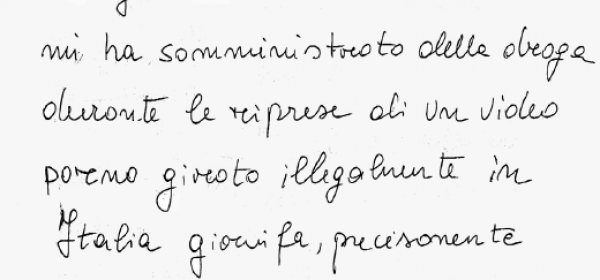 mi ha somministrato della droga
durante le riprese di un video
porno girato illegalmente in
Italia giorni fa, precisamente